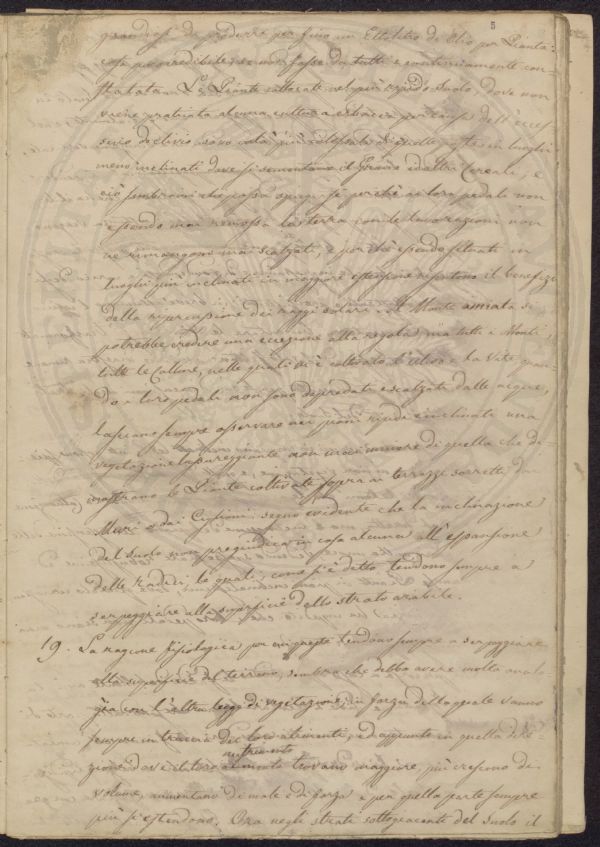 5
grandiosi da produrre per fino un Ettolitro di Olio per Pianta
cosa incredibile se non fosse da tutti e continuamente con-
statata. Le Piante collocate nel più ripido suolo, dove non
viene praticata alcuna cultura erbacea per causa dell'ecces-
sivo declivio sono colà più di quelle poste in luoghi
meno inclinati dove si sementano il Grano ed altri Cereali, e
ciò sembrami che possa perchè ai loro pedali non
essendo mai remossa la terra con le lavorazioni non
ne rimangono mai scalzati, e perchè essendo situati in
luoghi più inclinati in maggiore estensione risentono il benefizio
della ripercussione dei raggi solari. Il Monte amiata si
potrebbe credere una eccezione alla regola, ma tutti i Monti,
tutte le Colline, nelle quali vi è coltivato l'ulivo e la Vite quan-
do i loro pedali non sono depredati e scalzati dalle acque,
lasciano sempre osservare nei piani ripidi e inclinati una
vegetazione lussureggiante non mai minore di quella che di-
mostrano le Piante coltivate sopra i terrazzi sorretti da
Muri o dai Ciglioni, segno evidente che la inclinazione
del Suolo non pregiudica in cosa alcuna all'espansione
delle radici le quali, come si è detto tendono sempre a
serpeggiare alla superficie dello strato arabile.
19. La ragione fisiologica per cui queste tendono sempre a serpeggiare
alla superficie del terreno, sembra che debba avere molta analo-
gia con l'altra legge di vegetazione, in forza della quale vanno
sempre in traccia del loro alimento, ed appunto in quella dire-
nutrimento
zione dov'è il loro alimento trovano maggiore, più crescono di
volume, aumentano di mole e di forza e per quella parte sempre
più si estendono. Ora negli strati sottogiacenti del Suolo il